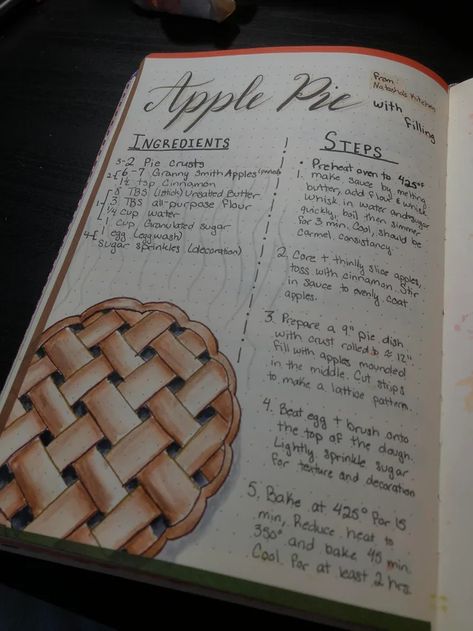 Apple Pie
From:
Natasha's Kitchen
with
filling
INGREDIENTS
3- 2 Pie crusts
2-{ 6-7 Granny Smith Apples (peeled)
1½ tsp Cinnamon
1-{ 8 TBS (1 stick) Unsalted Butter
3 TBS all-purpose flour
¼ cup water
1 cup Granulated sugar
4-{ 1 egg (egg wash)
sugar sprinkles (decoration)
STEPS
• Preheat oven to 425°
1. make sauce by melting
butter, add flour & whisk.
Whisk in water and sugar
quickly, boil then simmer
for 3 min. Cool, should be
carmel consistancy.
2. Core + thinly slice apples,
toss with cinnamon. Stir
in sauce to evenly coat
apples.
3. Prepare a 9" pie dish
with crust rolled to ≈ 12"
Fill with apples mounded
in the middle. Cut strips
to make a lattice pattern.
4. Beat egg + brush onto
the top of the dough.
Lightly sprinkle sugar
for texture and decoration
5. Bake at 425° for 15
min, Reduce heat to
350° and bake 45 min.
Cool for at least 2 hrs.